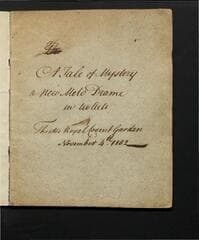 A Tale of Mystery
a New Melo Drame
in
Theatre Royal Covent Garden
November 4th 1802